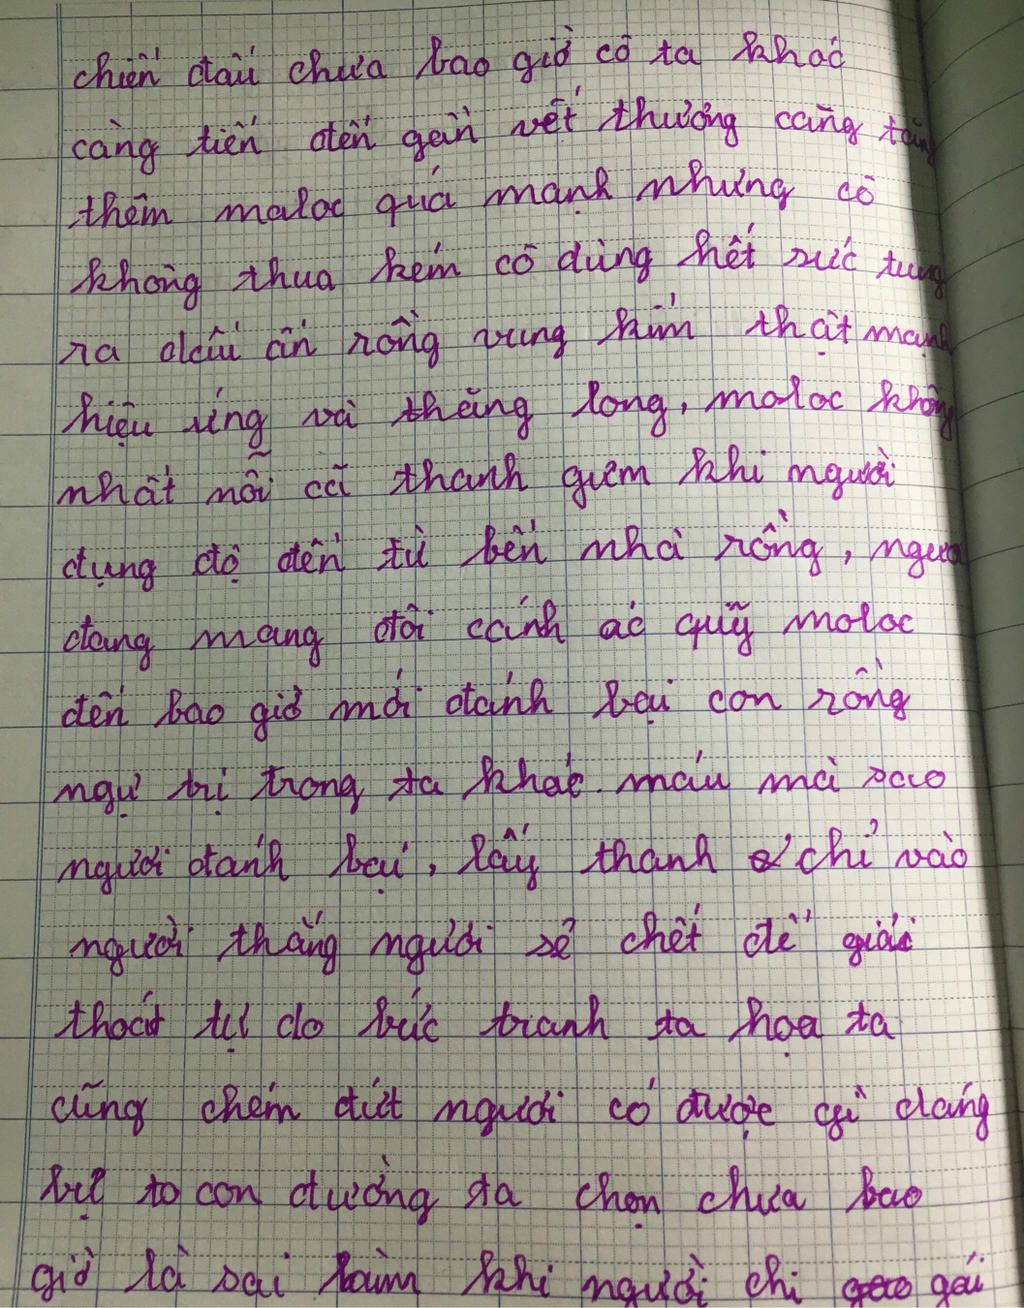 chiến đấu chưa bao giờ cô ta khác
càng tiến đến gần vết thương càng tăng
thêm maloc quá mạnh nhưng cô
không thua kém cô dùng hết sức tung
ra dấu ấn rồng vung kiếm thật mạnh
hiệu ứng và thăng long, moloc không
nhất mỗi cã thanh gươm khi người
dụng độ đến từ bến nhà rồng, ngươi
đang mang đôi cánh ác quỹ moloc
đến bao giờ mới đánh bại con rồng
ngự trị trong ta khát máu mà sao
ngươi đánh bại, lấy thanh chỉ vào
người thắng người sẽ chết để giải
thoát tự do bức tranh ta họa ta
cũng chém đứt ngươi có được gì đáng
to con đường ta chọn chưa bao
giờ là sai lầm khi người chi gái